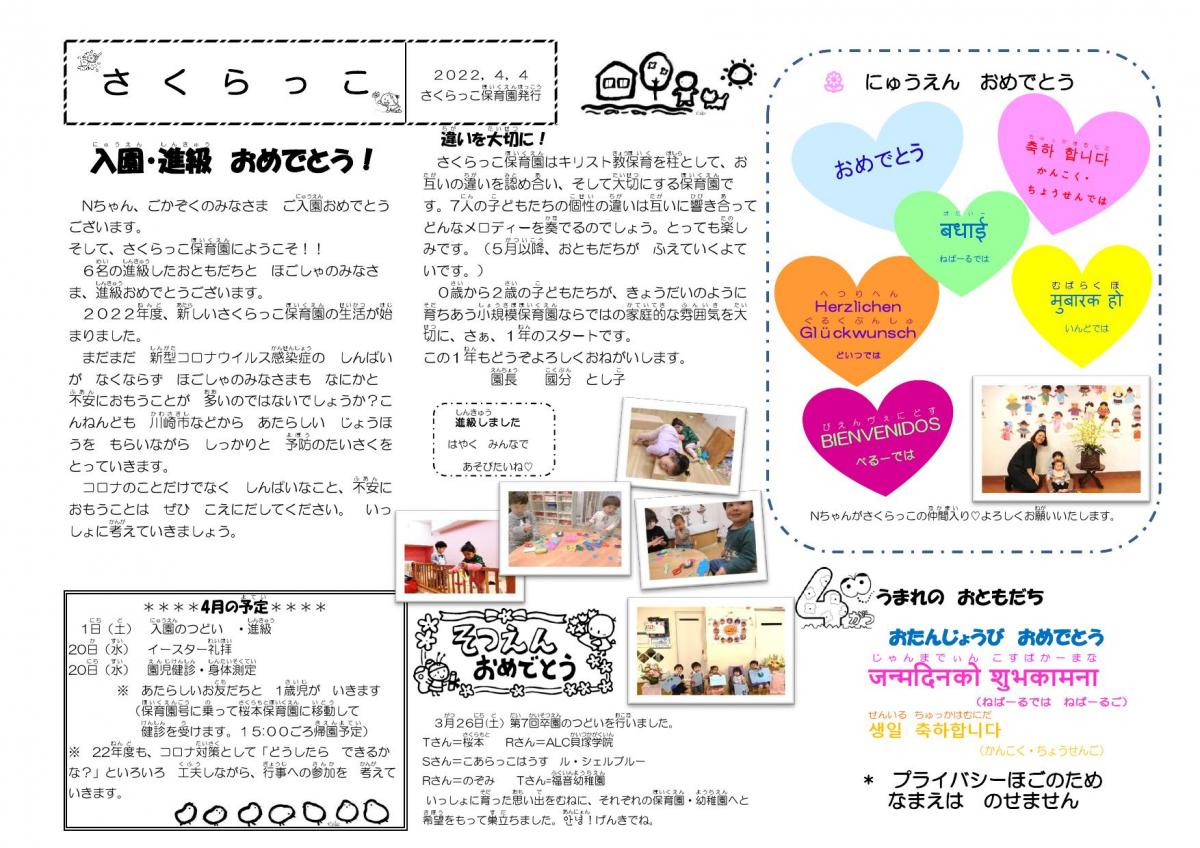 さくらっこ
2022,4,4
さくらっこ保育園発行
入園・進級　おめでとう！
Nちゃん、ごかぞくのみなさま　ご入園おめでとう
ございます。
そして、さくらっこ保育園にようこそ！！
６名の進級したおともだちと　ほごしゃのみなさ
ま、進級おめでとうございます。
２０２２年度、新しいさくらっこ保育園の生活が始
まりました。
まだまだ　新型コロナウイルス感染症の　しんぱい
が　なくならず　ほごしゃのみなさまも　なにかと
不安におもうことが　多いのではないでしょうか？こ
んねんども　川崎市などから　あたらしい　じょうほ
うを　もらいながら　しっかりと　予防のたいさくを
とっていきます。
コロナのことだけでなく　しんぱいなこと、不安に
おもうことは　ぜひ　こえにだしてください。　いっ
しょに考えていきましょう。
＊＊＊＊4月の予定＊＊＊＊
1日（土）　入園のつどい　・進級
20日（水）　イースター礼拝
20日（水）　園児健診・身体測定
※　あたらしいお友だちと　1歳児が　いきます
（保育園号に乗って桜本保育園に移動して
健診を受けます。１５:００ごろ帰園予定）
※　22年度も、コロナ対策として「どうしたら　できるか
な？」といろいろ　工夫しながら、行事への参加を　考えて
いきます。
違いを大切に！
さくらっこ保育園はキリスト教保育を柱として、お
互いの違いを認め合い、そして大切にする保育園で
す。７人の子どもたちの個性の違いは互いに響き合って
どんなメロディーを奏でるのでしょう。とっても楽し
みです。（５月以降、おともだちが　ふえていくよて
いです。）
０歳から２歳の子どもたちが、きょうだいのように
育ちあう小規模保育園ならではの家庭的な雰囲気を大
切に、さぁ、１年のスタートです。
この１年もどうぞよろしくおねがいします。
園長　　國分　とし子
進級しました
はやく　みんなで
あそびたいね♡
そつえん
おめでとう
3月26日(土）第7回卒園のつどいを行いました。
Tさん＝桜本　　Rさん＝ALC貝塚学院
Sさん＝こあらっこはうす　ル・シェルブルー
Rさん＝のぞみ　　Tさん=福音幼稚園
いっしょに育った思い出をむねに、それぞれの保育園・幼稚園へと
希望をもって巣立ちました。안녕！げんきでね。
にゅうえん　おめでとう
おめでとう
ちゅっかはむにだ
축하 합니다
かんこく・
ちょうせんでは
बधाई
ねぱーるでは
へつりへん
Herzlichen
ぐるくぶんしゅ
Glückwunsch
どいつでは
むばらく ほ
मुबारक हो
いんどでは
びえんヴぇにどす
BIENVENIDOS
ぺるーでは
Nちゃんがさくらっこの仲間入り♡よろしくお願いいたします。
4がつ
うまれの　おともだち
おたんじょうび　おめでとう
じゃんまでぃん　こすばかーまな
जन्मदिनको शुभकामना
（ねぱーるでは　ねぱーるご）
せんいる　ちゅっかはむにだ
생일 축하합니다
（かんこく・ちょうせんご）
＊　プライバシーほごのため
なまえは　のせません